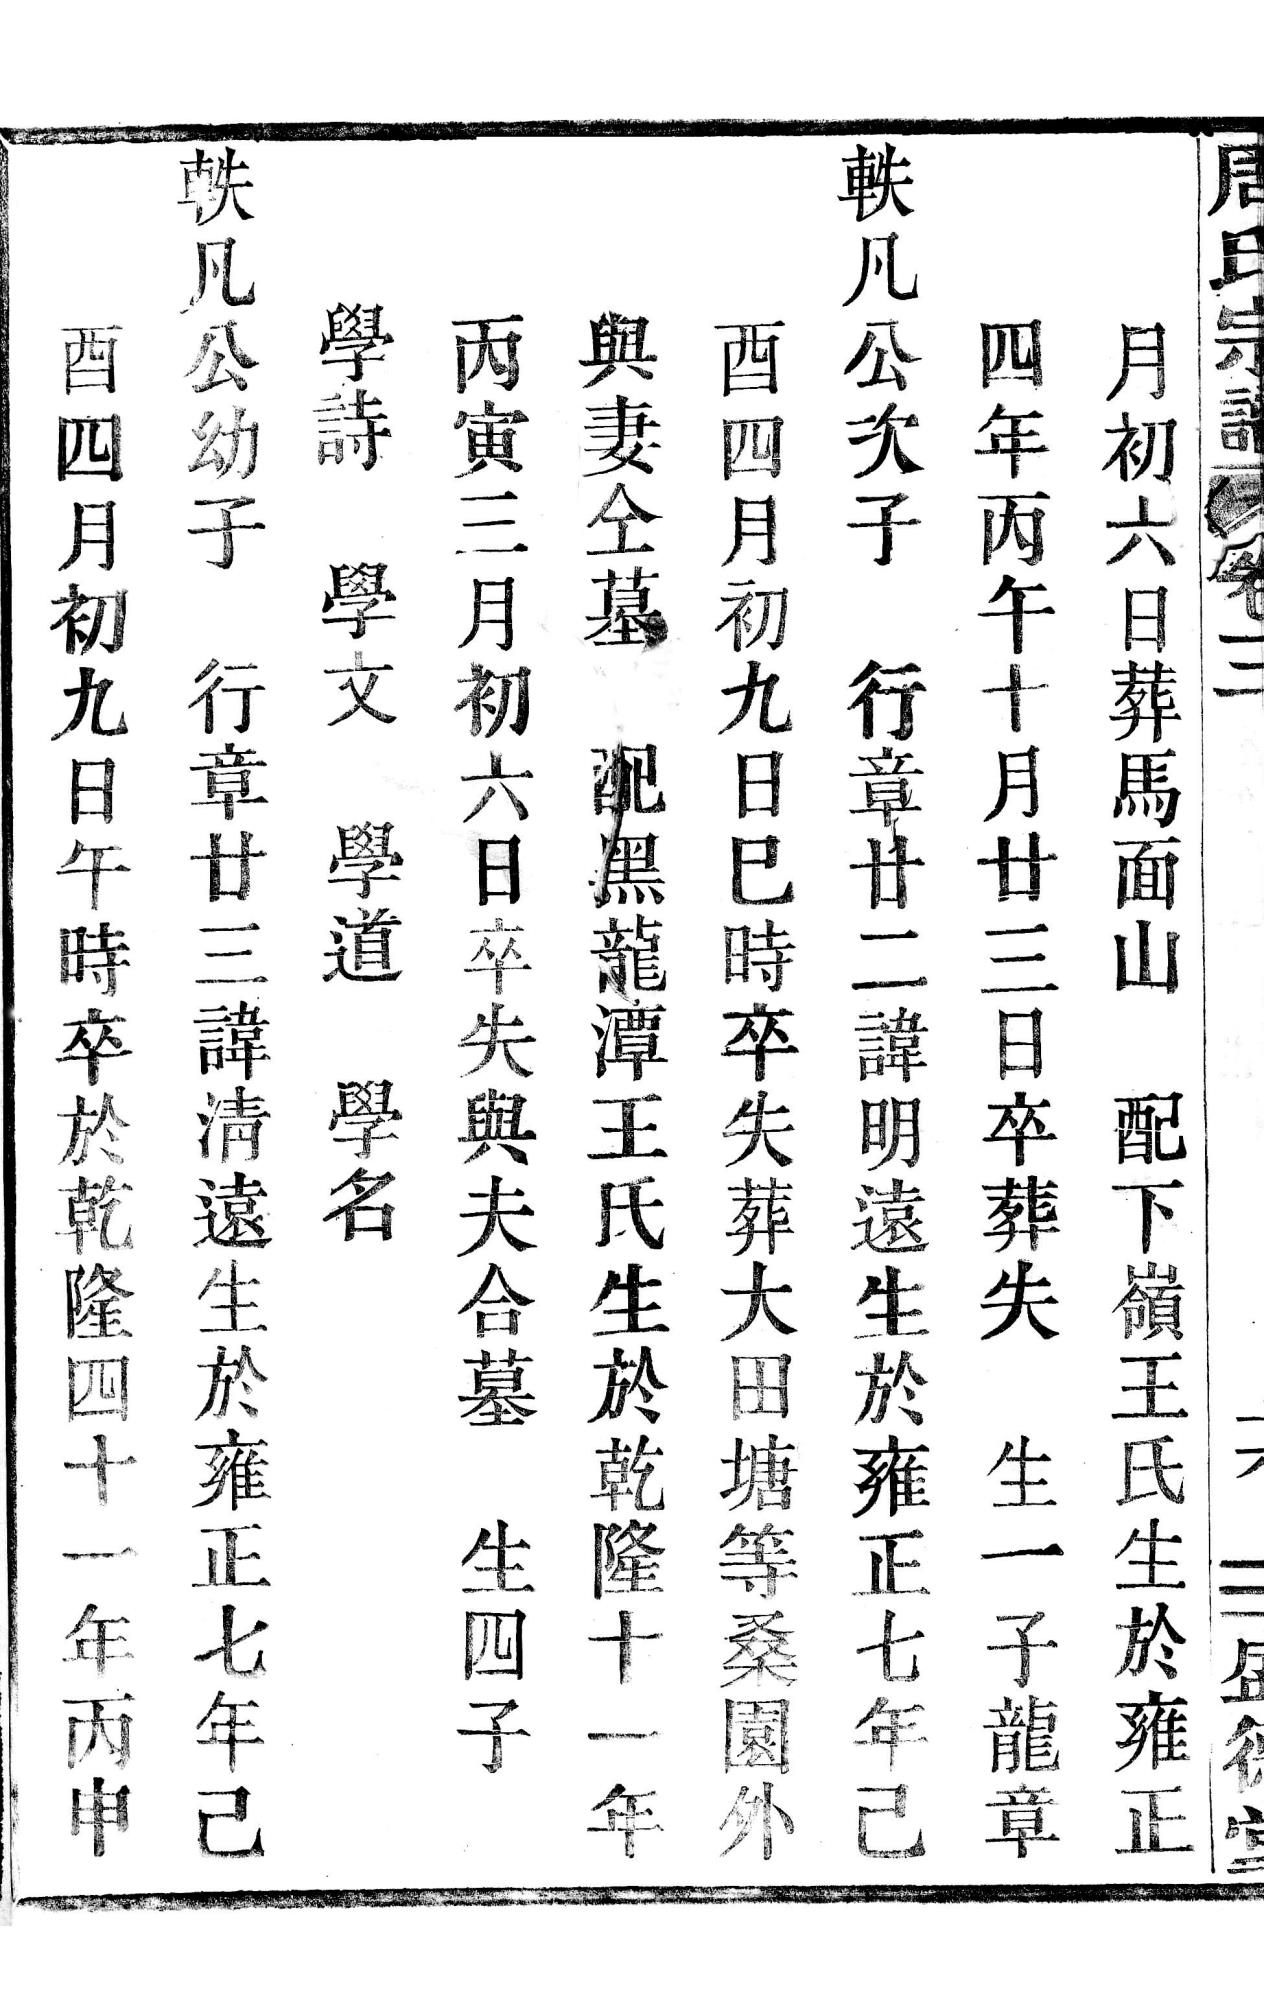 周氏宗譜 卷二 六 盛德堂
月初六日葬馬面山 配下嶺王氏生於雍正
四年丙午十月廿三日卒葬失 生一子龍章
軼凡公次子 行章廿二諱明遠生於雍正七年己
酉四月初九日巳時卒失葬大田塘等桑園外
與妻仝墓 配黑龍潭王氏生於乾隆十一年
丙寅三月初六日卒失與夫合墓 生四子
學詩 學文 學道 學名
軼凡公幼子 行章廿三諱清遠生於雍正七年己
酉四月初九日午時卒於乾隆四十一年丙申